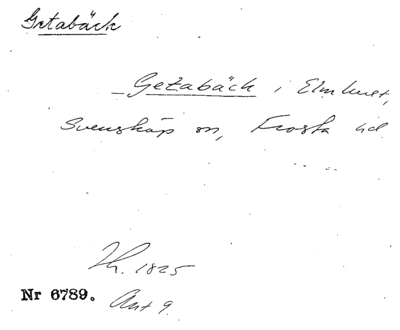 Getabäck
Getabäck i Elmhult,
Svensköp sn, Frosta hd
Th. 1825
Nr 6789.
Ant 9.